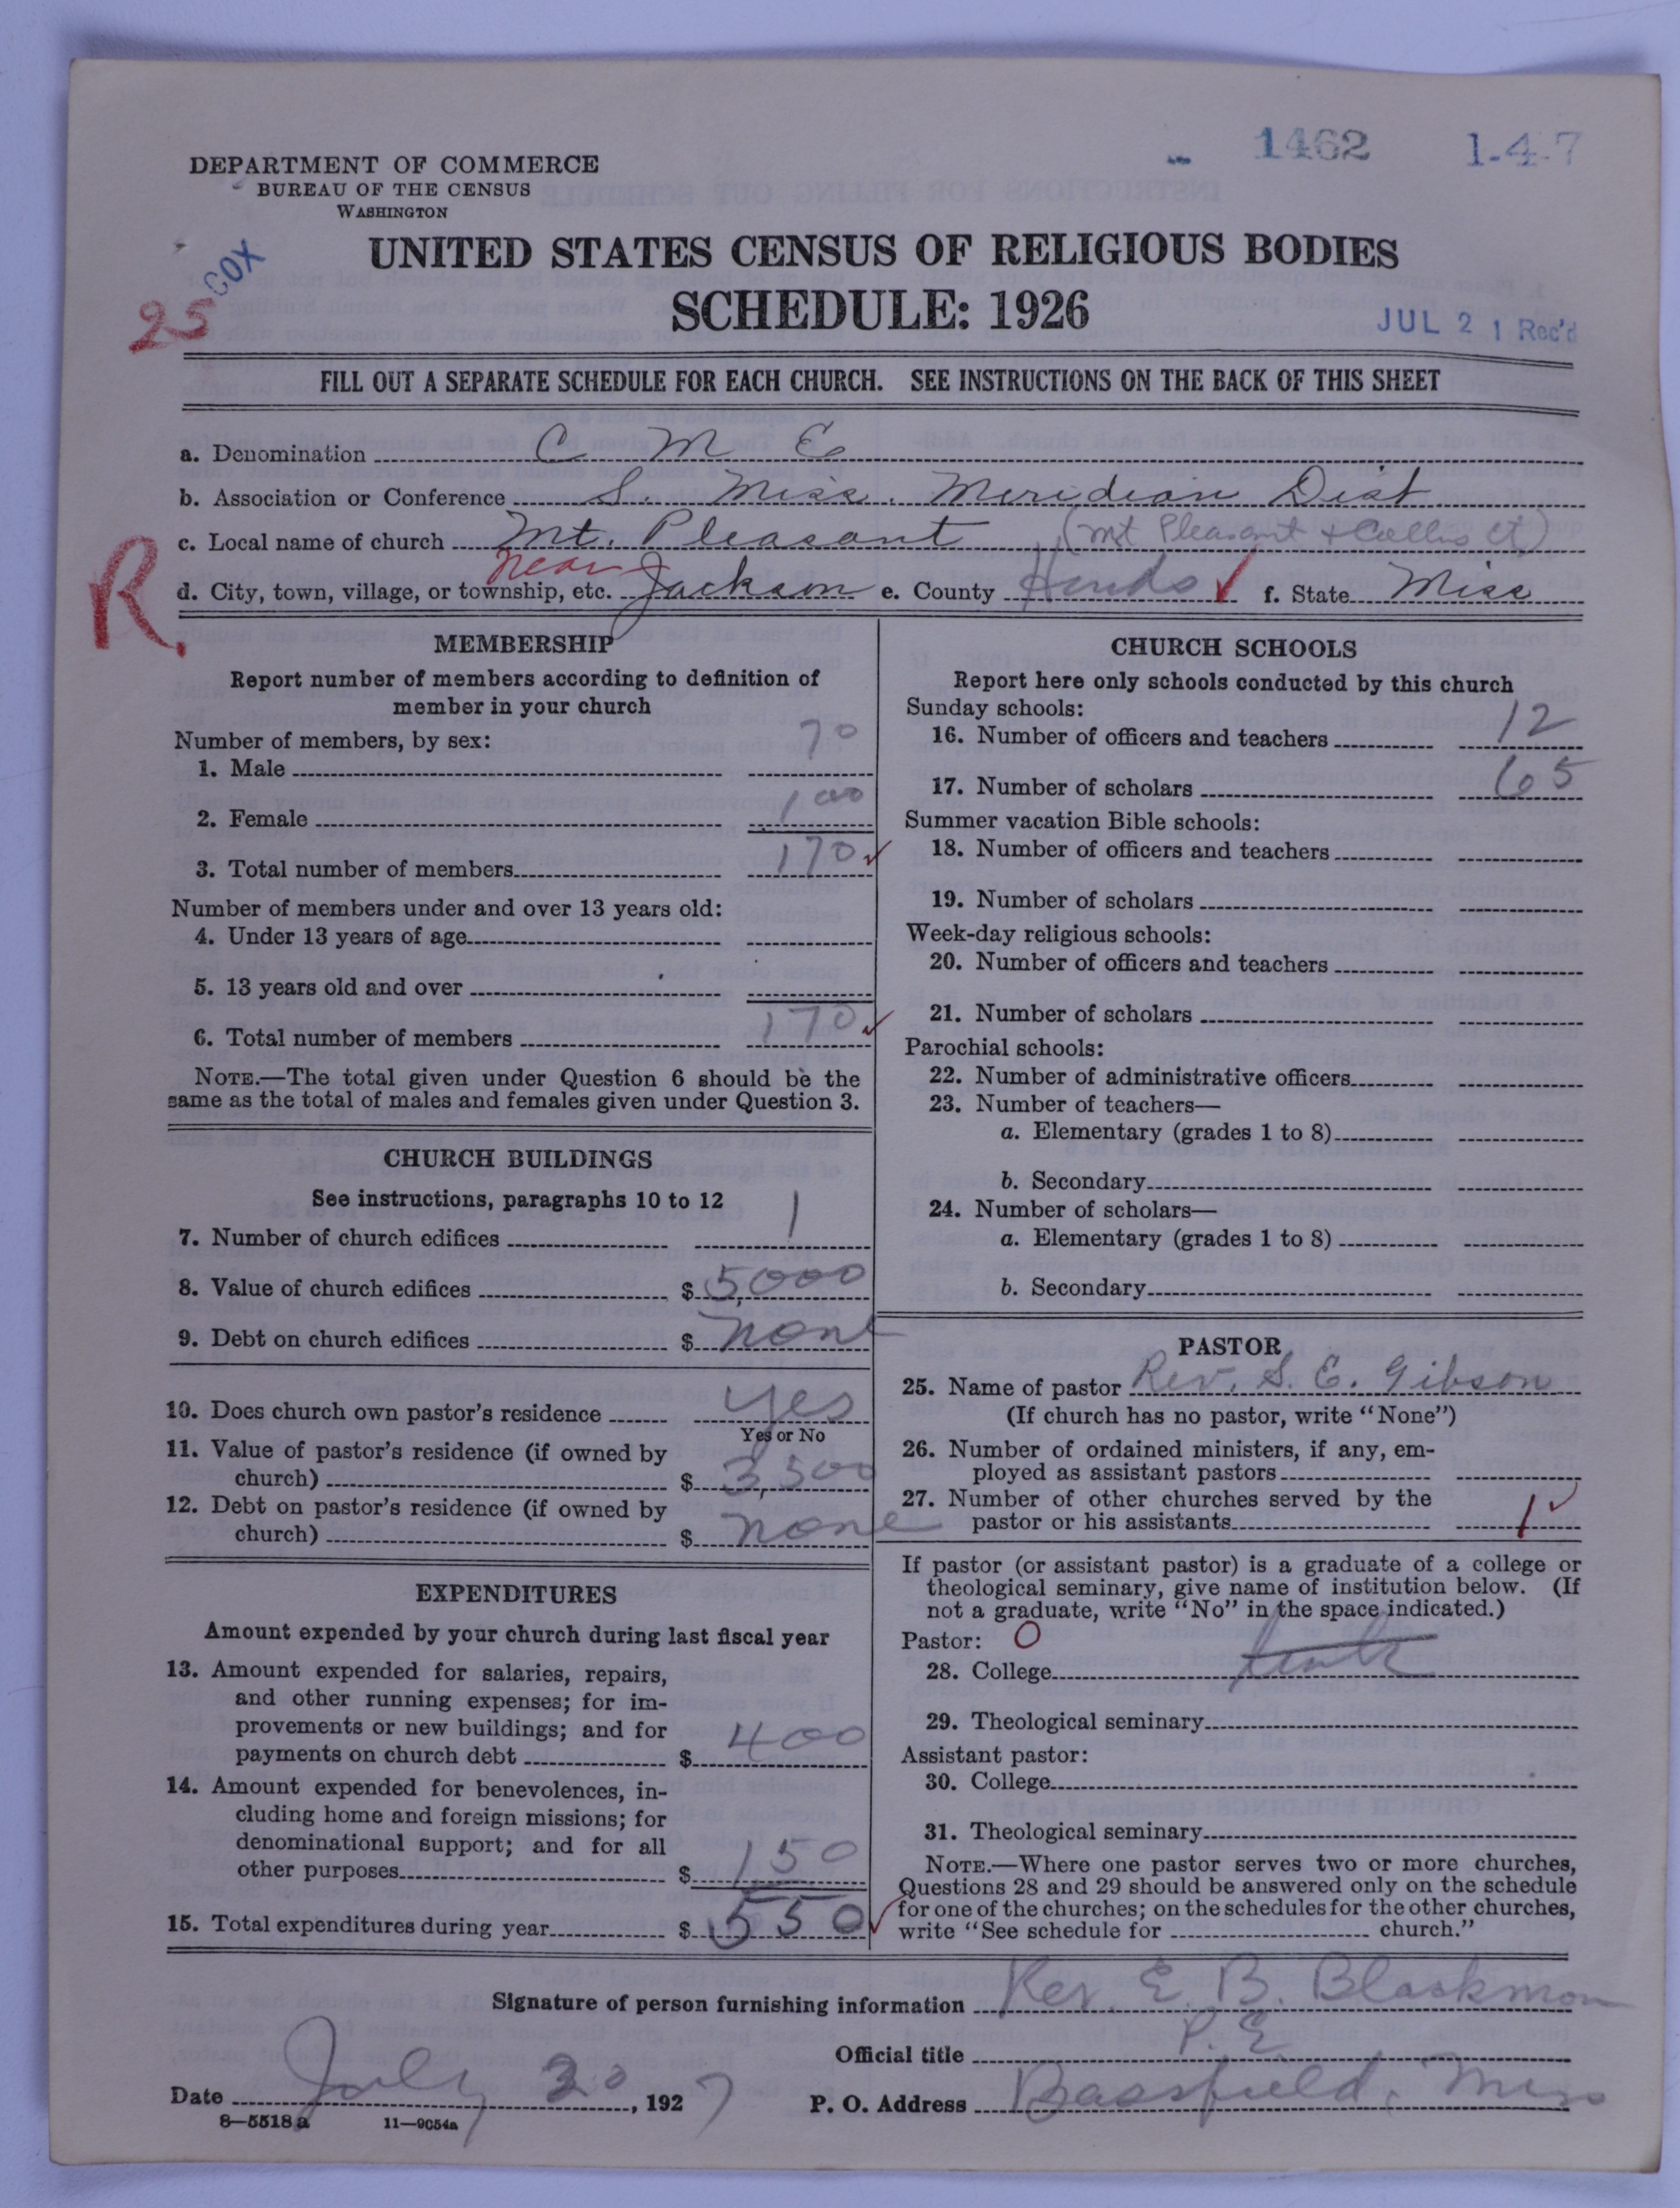 1462 1-4-7
DEPARTMENT OF COMMERCE
BUREAU OF THE CENSUS
WASHINGTON
COX
25
UNITED STATES CENSUS OF RELIGIOUS BODIES
SCHEDULE: 1926
JUL 21 Rec'd
FILL OUT A SEPARATE SCHEDULE FOR EACH CHURCH. SEE INSTRUCTIONS ON THE BACK OF THIS SHEET
a. Denomination C M E
b. Association or Conference S. Miss. Meridian Dist.
c. Local name of church Mt. Pleasant (Mt Pleasant + Collins Ct)
R.
near
d. City, town, village, or township, etc. Jackson e. County Hinds f. State Miss
MEMBERSHIP
Report number of members according to definition of
member in your church
Number of members, by sex:
1. Male 70
2. Female 100
3. Total number of members 170
Number of members under and over 13 years old:
4. Under 13 years of age
5. 13 years old and over
6. Total number of members 170
NOTE.—The total given under Question 6 should be the
same as the total of males and females given under Question 3.
CHURCH BUILDINGS
See instructions, paragraphs 10 to 12
7. Number of church edifices 1
8. Value of church edifices $ 5,000
9. Debt on church edifices $ none
10. Does church own pastor's residence yes
Yes or No
11. Value of pastor's residence (if owned by
church) $ 3,500
12. Debt on pastor's residence (if owned by
church) $ none
EXPENDITURES
Amount expended by your church during last fiscal year
13. Amount expended for salaries, repairs,
and other running expenses; for im-
provements or new buildings; and for
payments on church debt $ 400
14. Amount expended for benevolences, in-
cluding home and foreign missions; for
denominational support; and for all
other purposes $ 150
15. Total expenditures during year $ 550
CHURCH SCHOOLS
Report here only schools conducted by this church
Sunday schools:
16. Number of officers and teachers 12
17. Number of scholars 65
Summer vacation Bible schools:
18. Number of officers and teachers
19. Number of scholars
Week-day religious schools:
20. Number of officers and teachers
21. Number of scholars
Parochial schools:
22. Number of administrative officers
23. Number of teachers—
a. Elementary (grades 1 to 8)
b. Secondary
24. Number of scholars—
a. Elementary (grades 1 to 8)
b. Secondary
PASTOR
25. Name of pastor Rev. S. E. Gibson
(If church has no pastor, write "None")
26. Number of ordained ministers, if any, em-
ployed as assistant pastors
27. Number of other churches served by the
pastor or his assistants 1
If pastor (or assistant pastor) is a graduate of a college or
theological seminary, give name of institution below. (If
not a graduate, write "No" in the space indicated.)
Pastor: O
28. College
29. Theological seminary
Assistant pastor:
30. College
31. Theological seminary
NOTE.—Where one pastor serves two or more churches,
Questions 28 and 29 should be answered only on the schedule
for one of the churches; on the schedules for the other churches,
write "See schedule for church."
Signature of person furnishing information Rev. E. B. Blackmon
Official title P. E.
Date July 20, 1927 P. O. Address Bassfield, Miss
8—5518 a 11—9054a